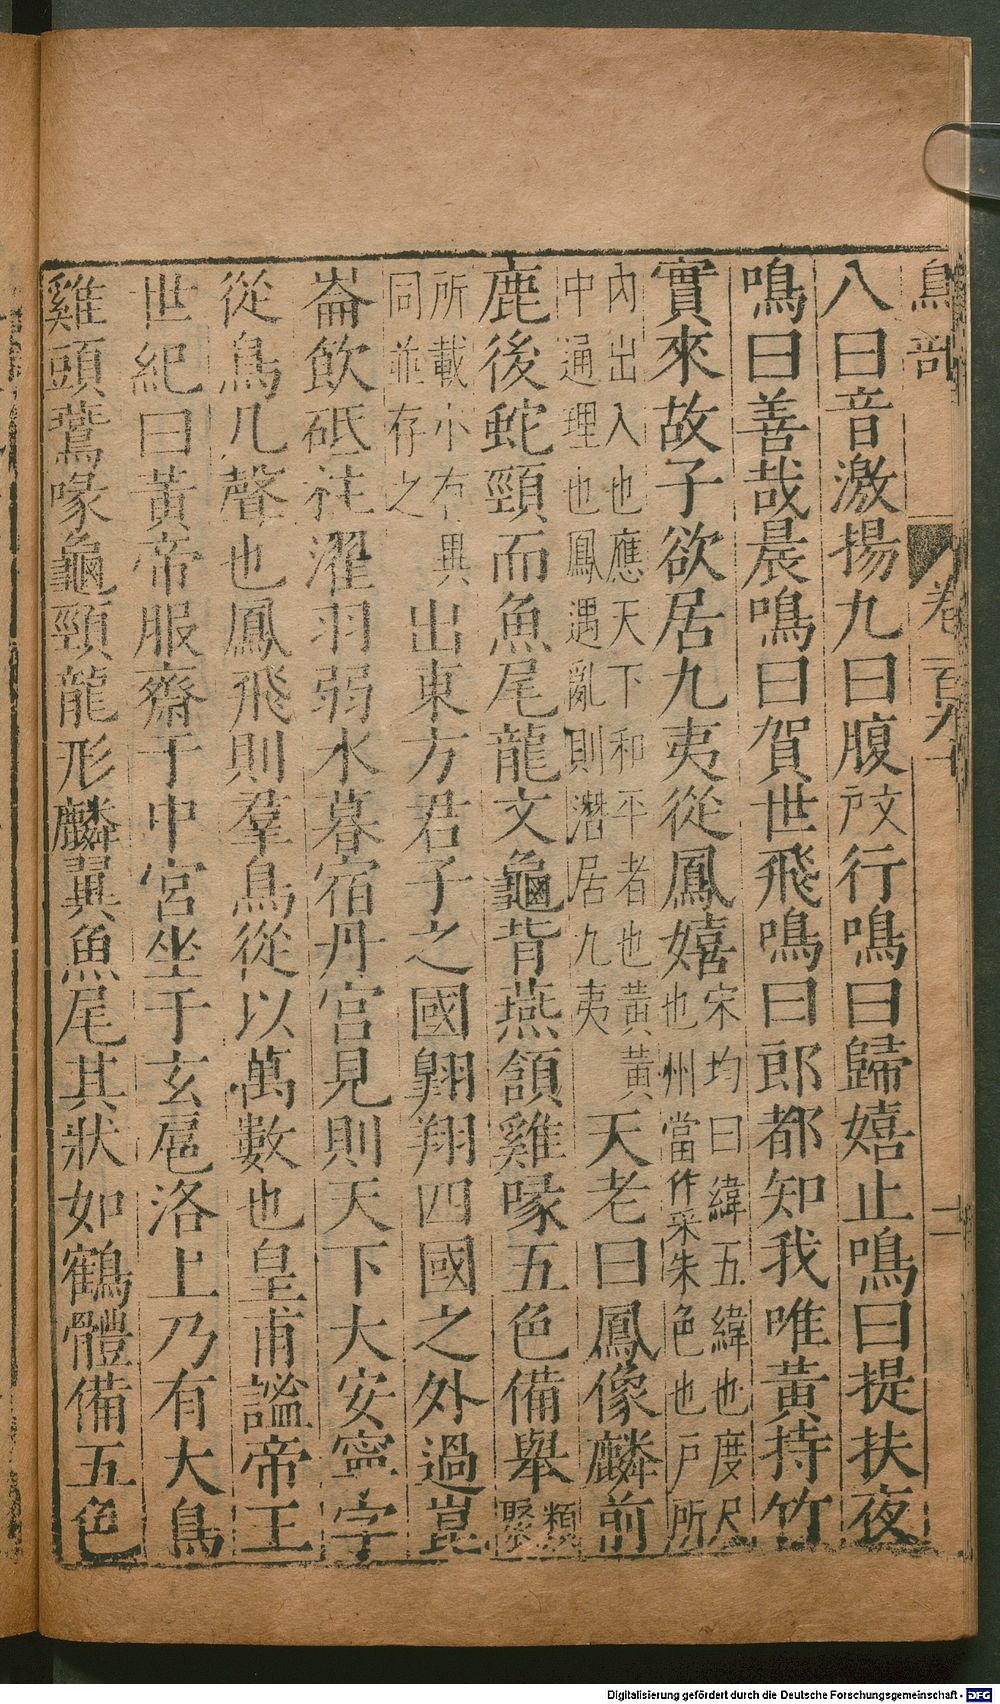 鳥部 卷一百九十 二
八曰音激揚九曰腹文戸行鳴曰歸嬉止鳴曰提扶夜
鳴曰善哉晨鳴曰賀世飛鳴曰郎都知我唯黃持竹
實來故子欲居九夷從鳳嬉宋均曰緯五緯也度尺也州當作采朱色也戸所
內出入也應天下和平者也黃黃中通理也鳳遇亂則潛居九夷天老曰鳳像麟前
鹿後蛇頸而魚尾龍文龜背燕頷雞喙五色備舉類聚
所載小有異同並存之出東方君子之國翺翔四國之外過崑
崙飲砥柱濯羽弱水暮宿丹宮見則天下大安寍字
從鳥几聲也鳳飛則羣鳥從以萬數也皇甫謐帝王
世紀曰黃帝服齋于中宮坐于玄扈洛上乃有大鳥
雞頭鷰喙龜頸龍形麟翼魚尾其狀如鶴體備五色
Digitalisierung gefördert durch die Deutsche Forschungsgemeinschaft - DFG